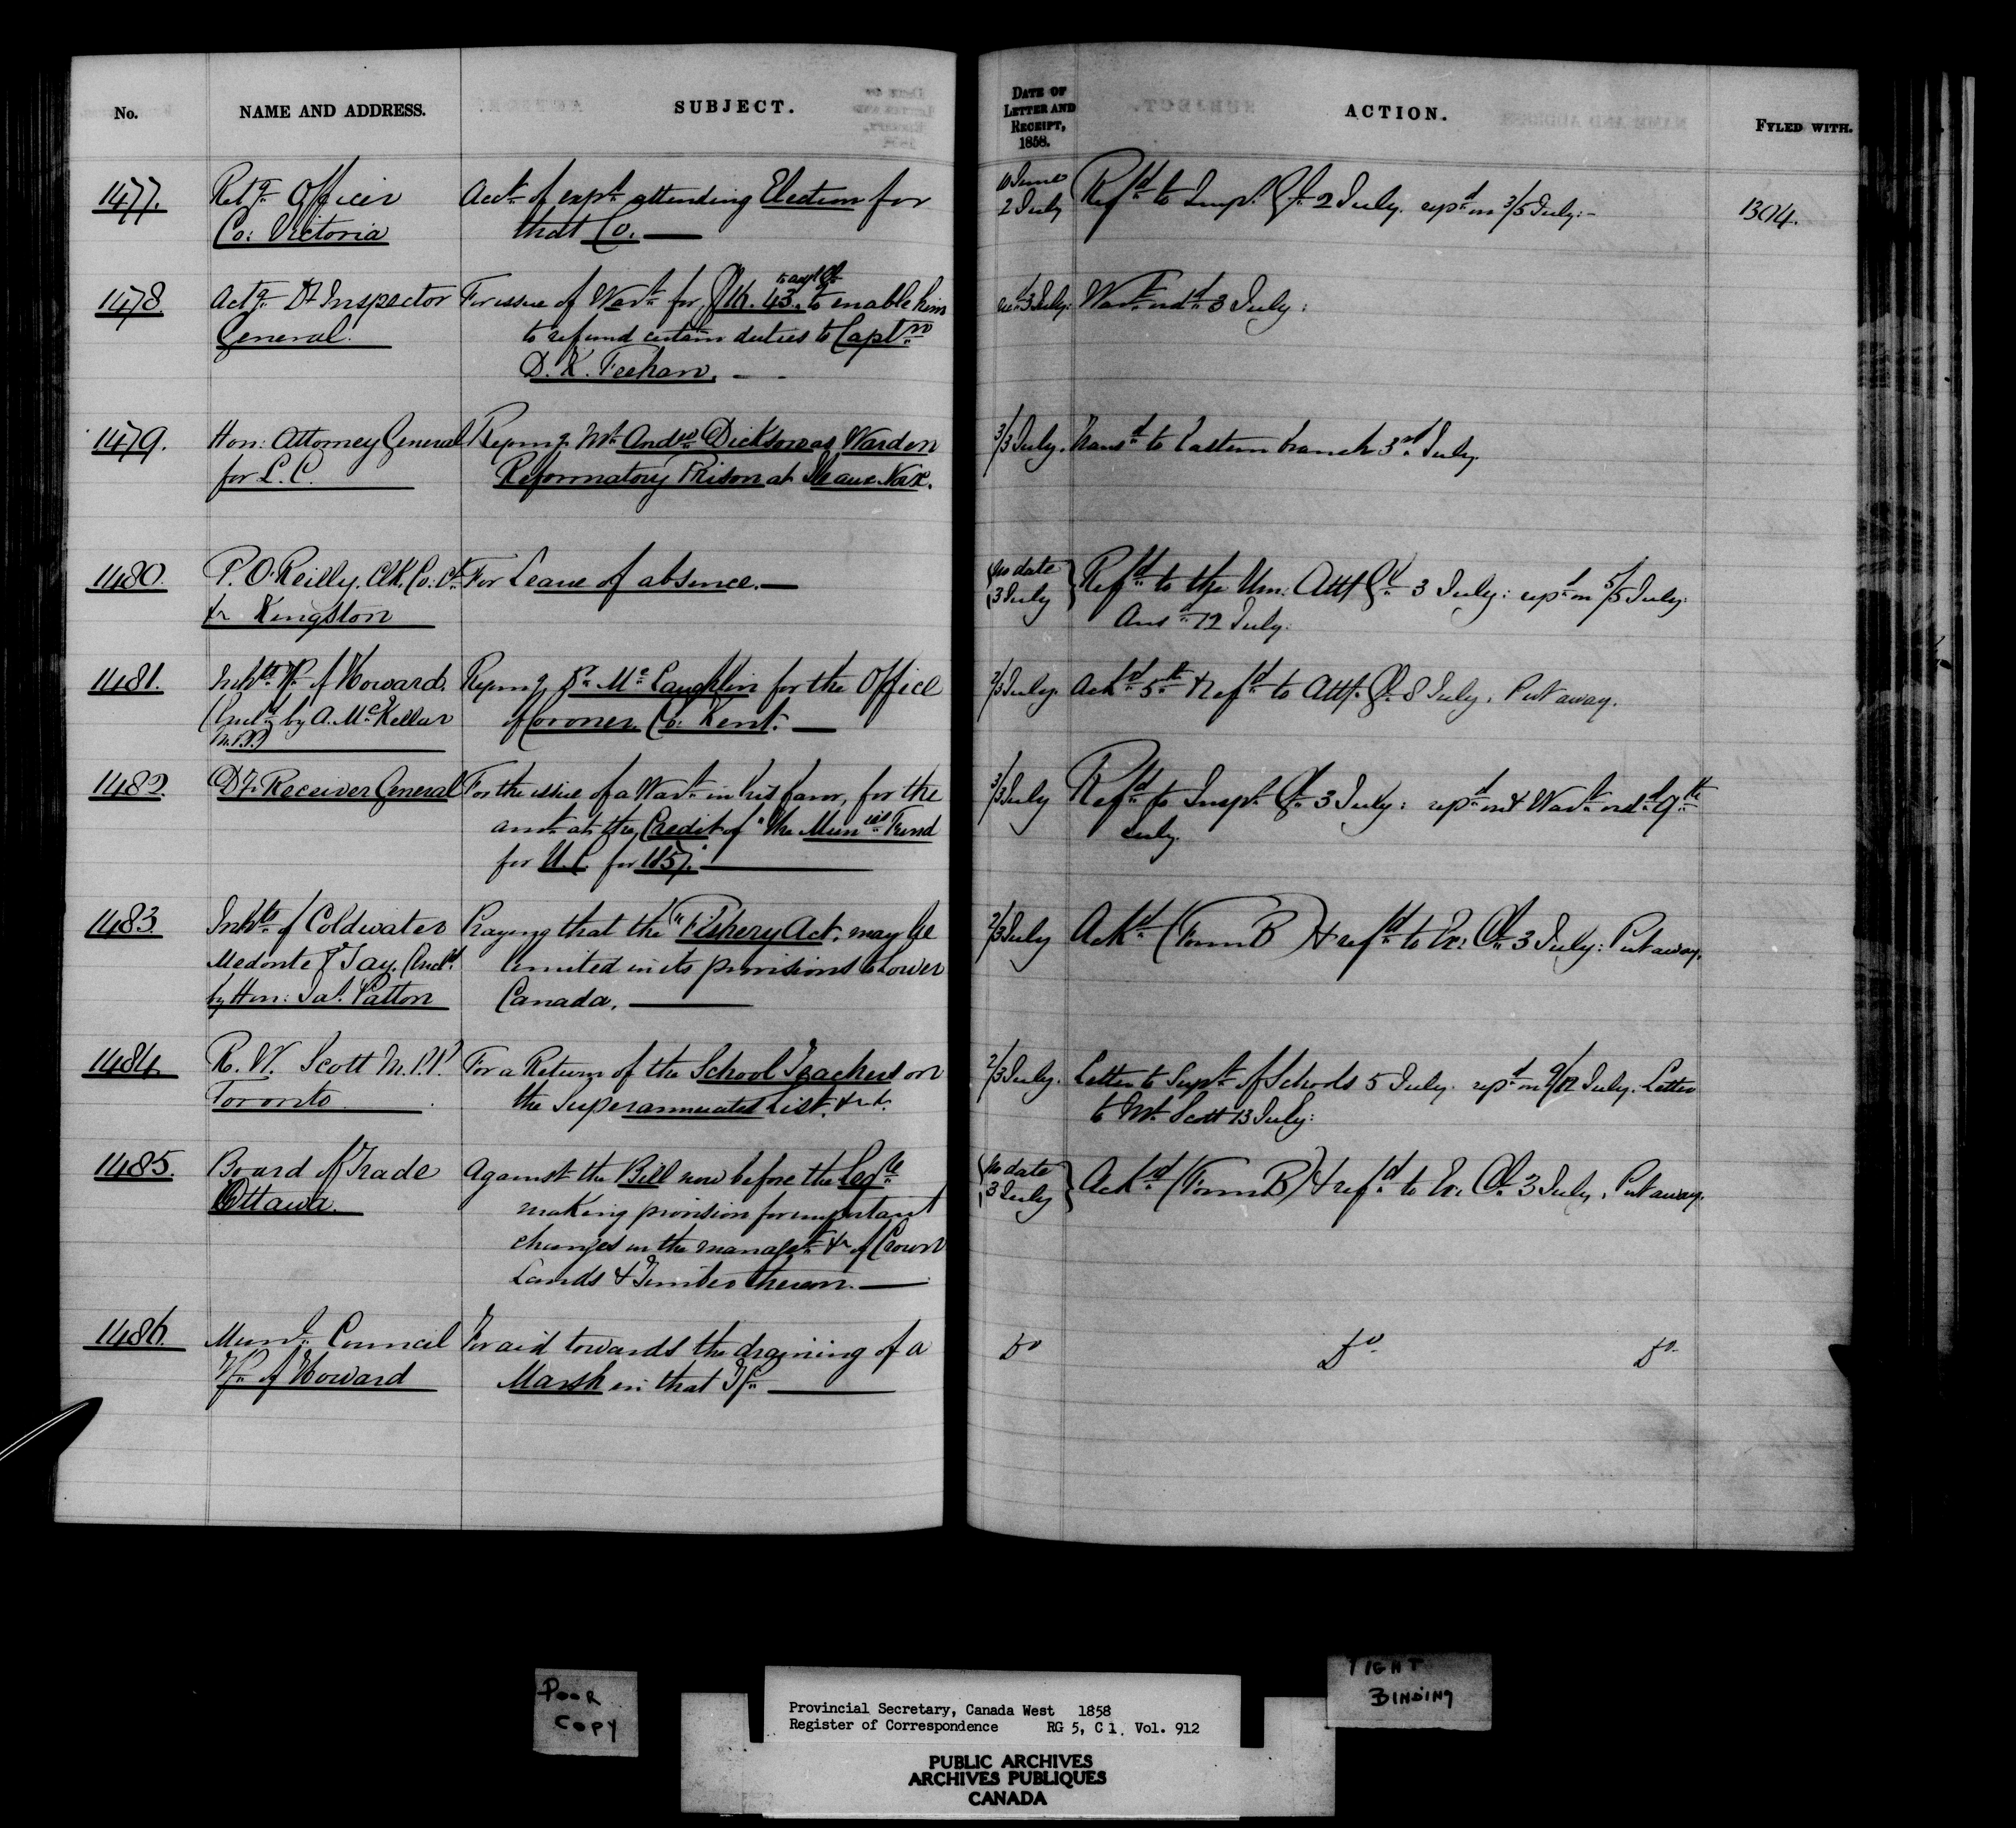 No. NAME AND ADDRESS. SUBJECT. DATE OF LETTER AND RECEIPT, 1858. ACTION. FYLED WITH.
1477. Retg Officer Acct of expn attending Election for 10 June Refd to Insp. Gl. 2 July. repd on 3/5 July:- 1304.
Co: Victoria that Co. — 2 July
1478. Actg Dy Inspector For issue of Wart for, $16.43. to enable him recd 3 July: Wart ordd 3 July:
General. to refund certain duties to Captn
D. K. Feehan. —
1479. Hon: Attorney General Repmg Mr Andw Dickson as Warden 3/3 July. Transd to Eastern branch 3rd July.
for L.C. Reformatory Prison at Isle aux Noix.
1480. P. O'Reilly. Clk. Co: Ct. For Leave of absence. — No date Refd to the Hon: Atty Gl 3 July: repd on 5/5 July.
&c Kingston 3 July Ansd 12 July:
1481. Inhbts Tp of Howard. Repmg Dr McLaughlin for the Office 2/3 July. Ackd 5th & refd to Atty. Gl. 8 July. Put away.
(Encld by A. McKellar of Coroner Co: Kent. —
M.P.P.)
1482. Dy Receiver General For the issue of a Wart in his favor, for the 3/3 July Refd to Inspr Gl. 3 July: repd on & Wart ordd 9th
amt at the Credit of "the Munls Fund July.
for U.C. for 1857." —
1483. Inhbts of Coldwater Praying that the "Fishery Act" may be 2/3 July Ackd (Form B) & refd to Ex: Cl. 3 July: Put away.
Medonte & Tay. (Encld limited in its provisions to Lower
by Hon: Jas. Patton Canada. —
1484. R. W. Scott M.P.P. For a Return of the School Teachers on 2/3 July. Letter to Supt of Schools 5 July. repd on 9/12 July. Letter
Toronto the Superannuated List. &c. to Mr. Scott 13 July:
1485. Board of Trade Against the Bill now before the Legre No date Ackd (Form B) & refd to Ex: Cl. 3 July. Put away.
Ottawa. making provision for important 3 July
changes in the managet &c of Crown
Lands & Timber thereon. —
1486. Munl Council For aid towards the draining of a Do Do Do
Tp. of Howard Marsh in that Tp. —
POOR COPY
TIGHT BINDING
Provincial Secretary, Canada West 1858
Register of Correspondence RG 5, C 1. Vol. 912
PUBLIC ARCHIVES
ARCHIVES PUBLIQUES
CANADA